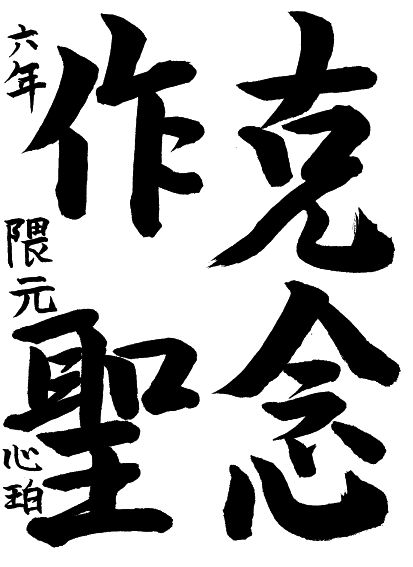 克念
作聖
六年 隈元 心珀